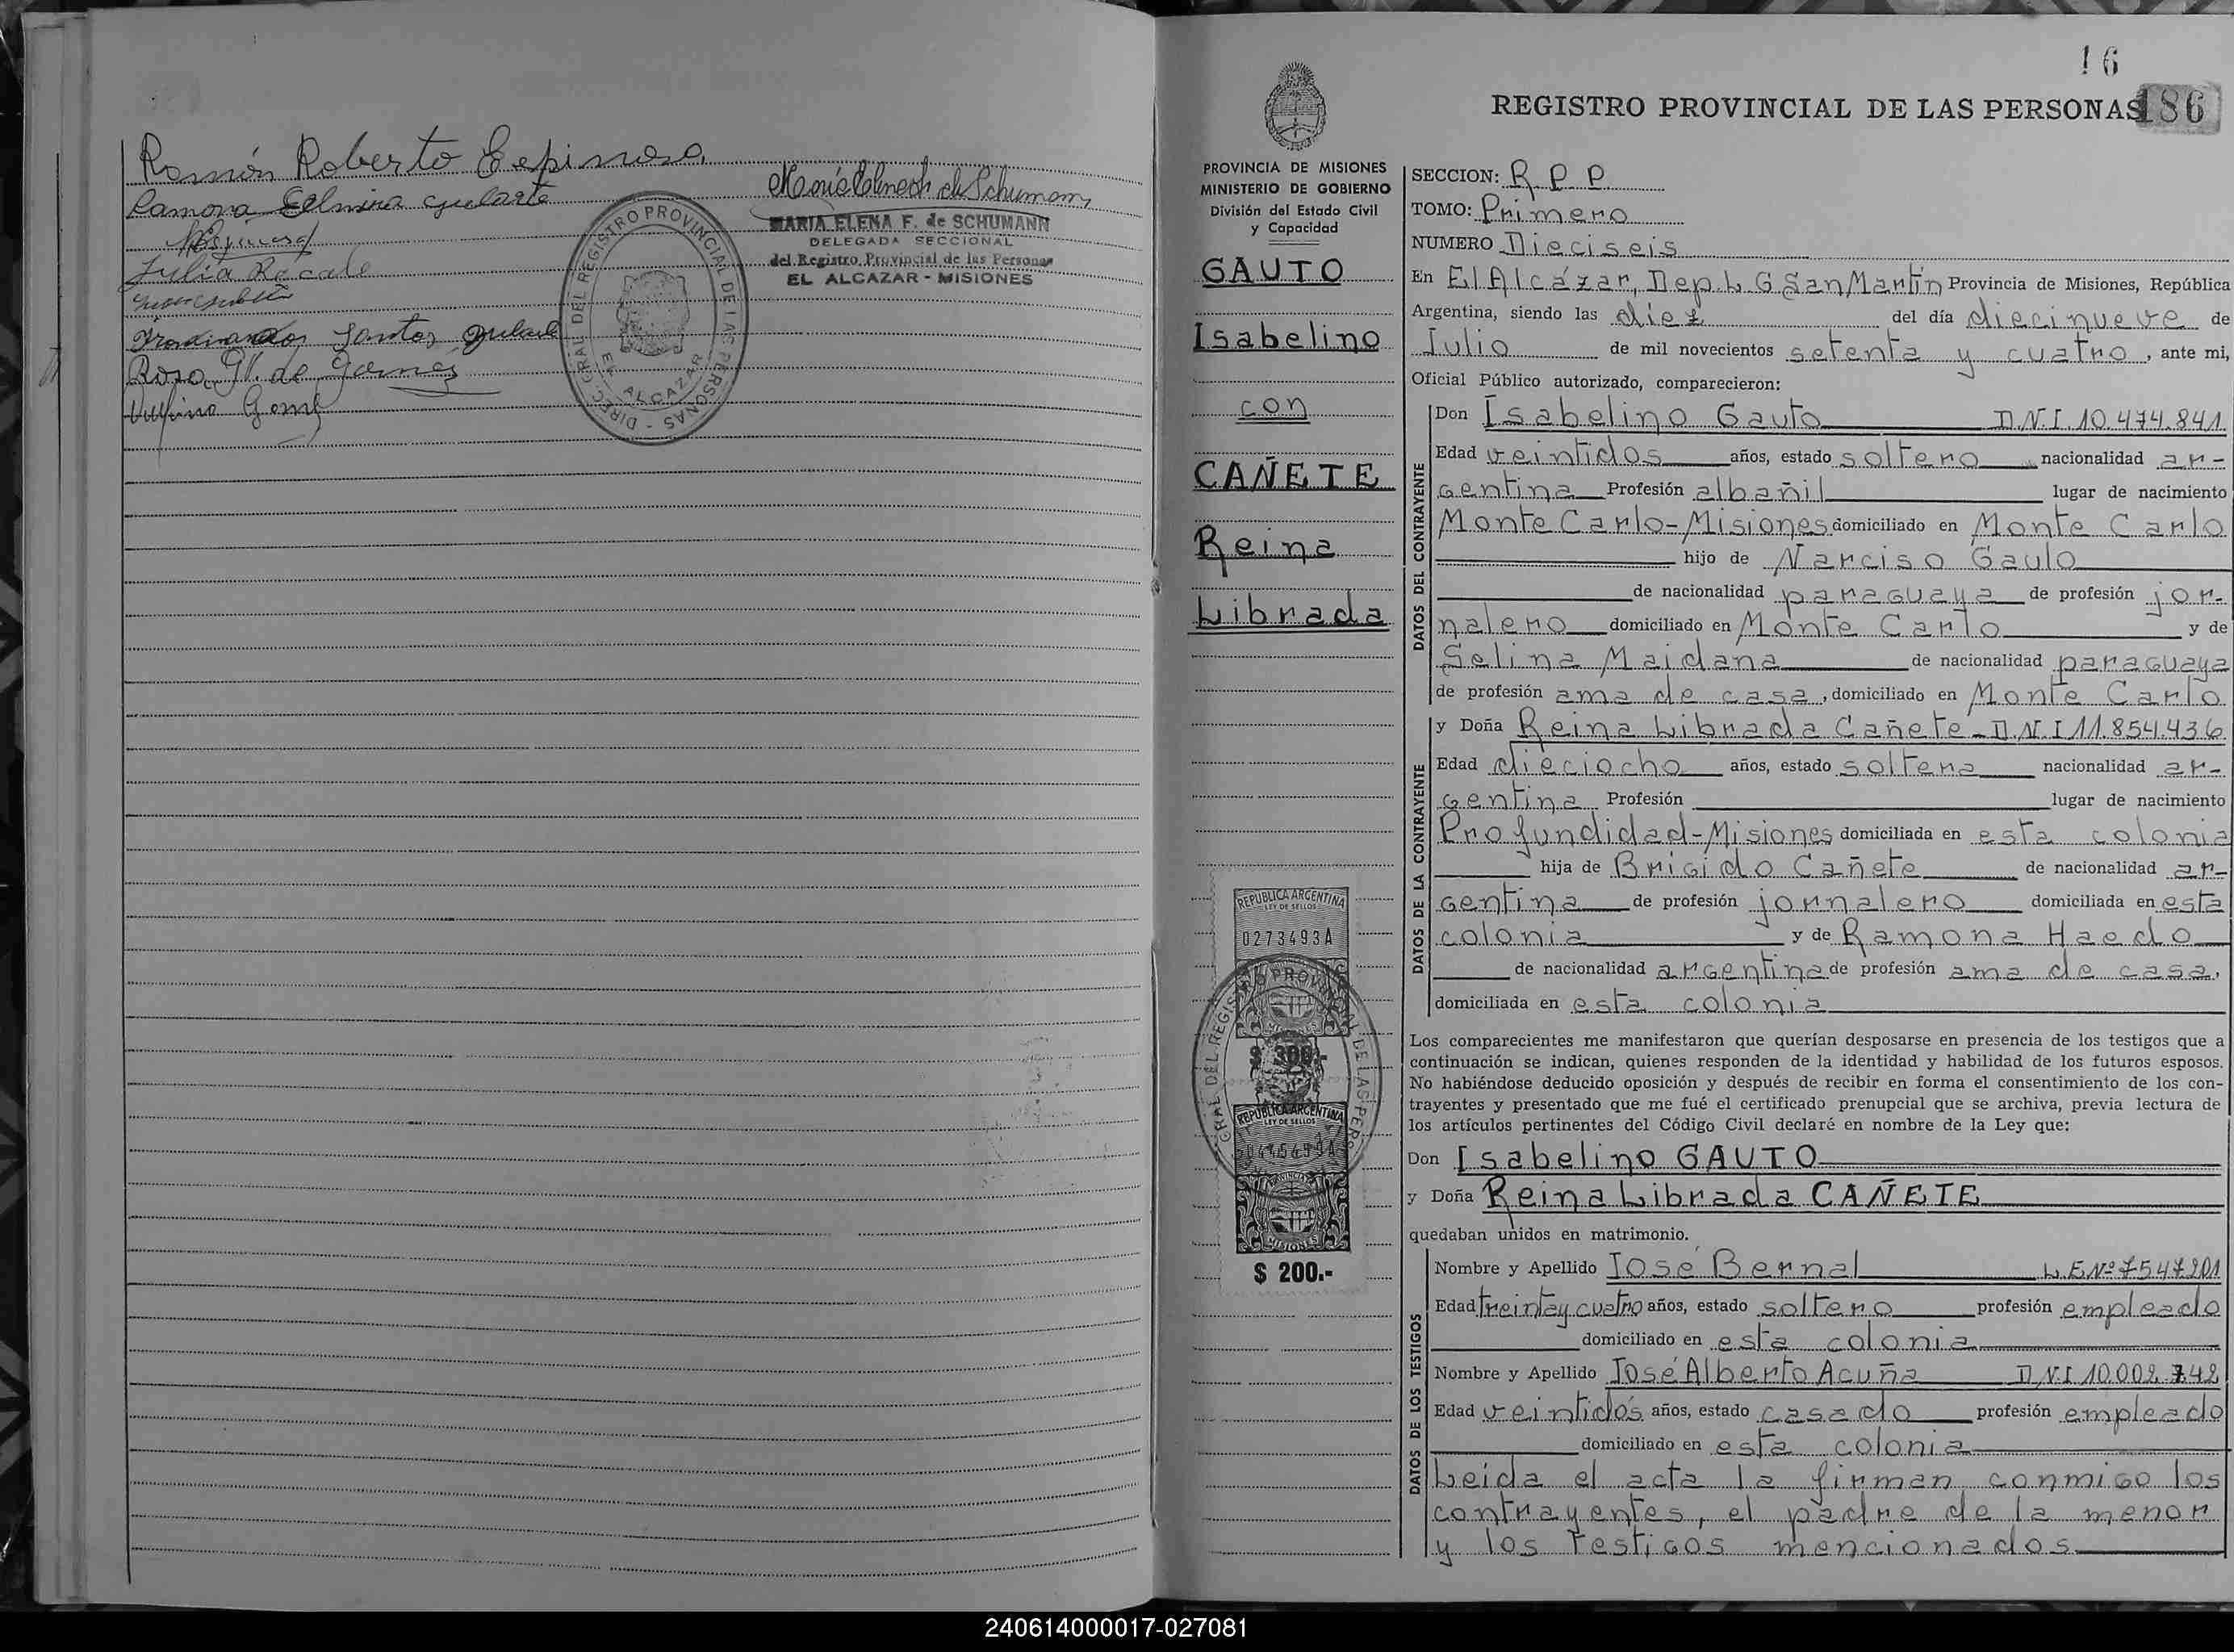 Ramón Roberto Espinosa
Ramona Elmira Gularte
Julia
Santos
Rosa M. de Gomez
Rufino Gomez
MARIA ELENA F. de SCHUMANN
DELEGADA SECCIONAL
del Registro Provincial de las Personas
EL ALCAZAR - MISIONES
DIREC. GRAL DEL REGISTRO PROVINCIAL DE LAS PERSONAS -
EL ALCAZAR
16
REGISTRO PROVINCIAL DE LAS PERSONAS
186
PROVINCIA DE MISIONES
MINISTERIO DE GOBIERNO
División del Estado Civil
y Capacidad
GAUTO
Isabelino
con
CAÑETE
Reina
Librada
REPUBLICA ARGENTINA
LEY DE SELLOS
0273493A
MISIONES
$ 300.-
REPUBLICA ARGENTINA
LEY DE SELLOS
MISIONES
$ 200.-
GRAL DEL REGISTRO PROVINCIAL DE LAS PERS
SECCION: R.P.P.
TOMO: Primero
NUMERO Dieciseis
En El Alcázar, Dep. L. G San Martín Provincia de Misiones, República
Argentina, siendo las diez del día diecinueve de
Julio de mil novecientos setenta y cuatro, ante mi,
Oficial Público autorizado, comparecieron:
DATOS DEL CONTRAYENTE
Don Isabelino Gauto D.N.I. 10.474.841
Edad veintidos años, estado soltero nacionalidad ar-
gentina Profesión albañil lugar de nacimiento
Monte Carlo-Misiones domiciliado en Monte Carlo
hijo de Narciso Gauto
de nacionalidad paraguaya de profesión jor-
nalero domiciliado en Monte Carlo y de
Selina Maidana de nacionalidad paraguaya
de profesión ama de casa, domiciliado en Monte Carlo
DATOS DE LA CONTRAYENTE
y Doña Reina Librada Cañete - D.N.I 11.854.436
Edad dieciocho años, estado soltera nacionalidad ar-
gentina Profesión lugar de nacimiento
Profundidad-Misiones domiciliada en esta colonia
hija de Brigido Cañete de nacionalidad ar-
gentina de profesión jornalero domiciliada en esta
colonia y de Ramona Haedo
de nacionalidad argentina de profesión ama de casa,
domiciliada en esta colonia
Los comparecientes me manifestaron que querían desposarse en presencia de los testigos que a
continuación se indican, quienes responden de la identidad y habilidad de los futuros esposos.
No habiéndose deducido oposición y después de recibir en forma el consentimiento de los con-
trayentes y presentado que me fué el certificado prenupcial que se archiva, previa lectura de
los artículos pertinentes del Código Civil declaré en nombre de la Ley que:
Don Isabelino GAUTO
y Doña Reina Librada CAÑETE
quedaban unidos en matrimonio.
DATOS DE LOS TESTIGOS
Nombre y Apellido José Bernal L.E.Nº 7547201
Edad treinta y cuatro años, estado soltero profesión empleado
domiciliado en esta colonia
Nombre y Apellido José Alberto Acuña D.N.I 10.002.742
Edad veintidós años, estado casado profesión empleado
domiciliado en esta colonia
Leida el acta la firman conmigo los
contrayentes, el padre de la menor
y los testigos mencionados
240614000017-027081